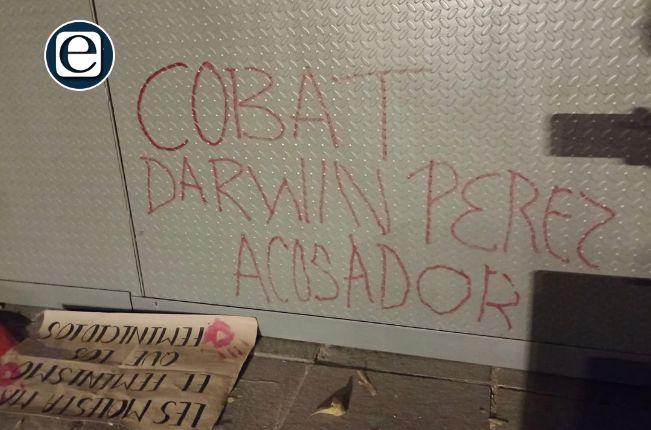 e
COBAT
DARWIN PEREZ
ACOSADOR
LES MOLESTA MAS
EL FEMENISMO
QUE LOS
FEMINICIDIOS